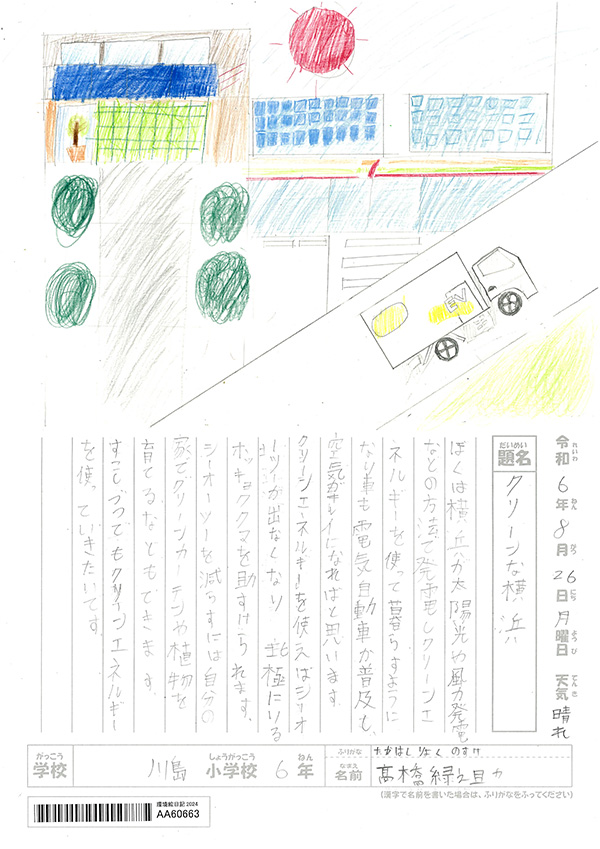 EV
令和6年8月26日月曜日 天気 晴れ
れいわ ねん がつ にち ようび てんき
だいめい
題名
クリーンな横浜
ぼくは横浜が太陽光や風力発電
などの方法で発電しクリーンエ
ネルギーを使って暮らすように
なり車も電気自動車が普及し、
空気がキレイになればと思います。
クリーンエネルギーを使えばシーオ
ーツーが出なくなり 北極にいる
ホッキョククマを助すけられます。
シーオーツーを減らすには自分の
家でグリーンカーテンや植物を
育てるなどもできます。
すこしづつでもクリーンエネルギー
を使っていきたいです。
がっこう しょうがっこう ねん
学校 川島 小学校 6年
ふりがな たかはし りょく のすけ
なまえ
名前 髙橋緑之
(漢字で名前を書いた場合は、ふりがなをふってください)
環境絵日記2024
AA60663